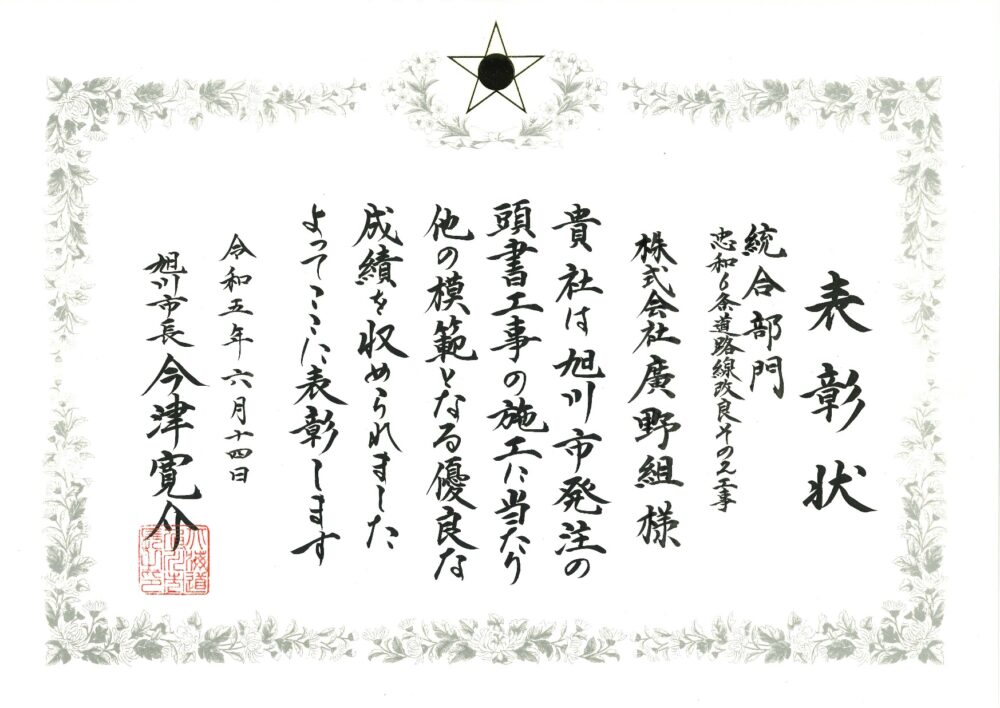 表彰状
統合部門
忠和6条道路線改良その2工事
株式会社廣野組様
貴社は旭川市発注の
頭書工事の施工に当たり
他の模範となる優良な
成績を収められました
よってここに表彰します
令和五年六月十四日
旭川市長 今津寛介
北海道旭川市長之印